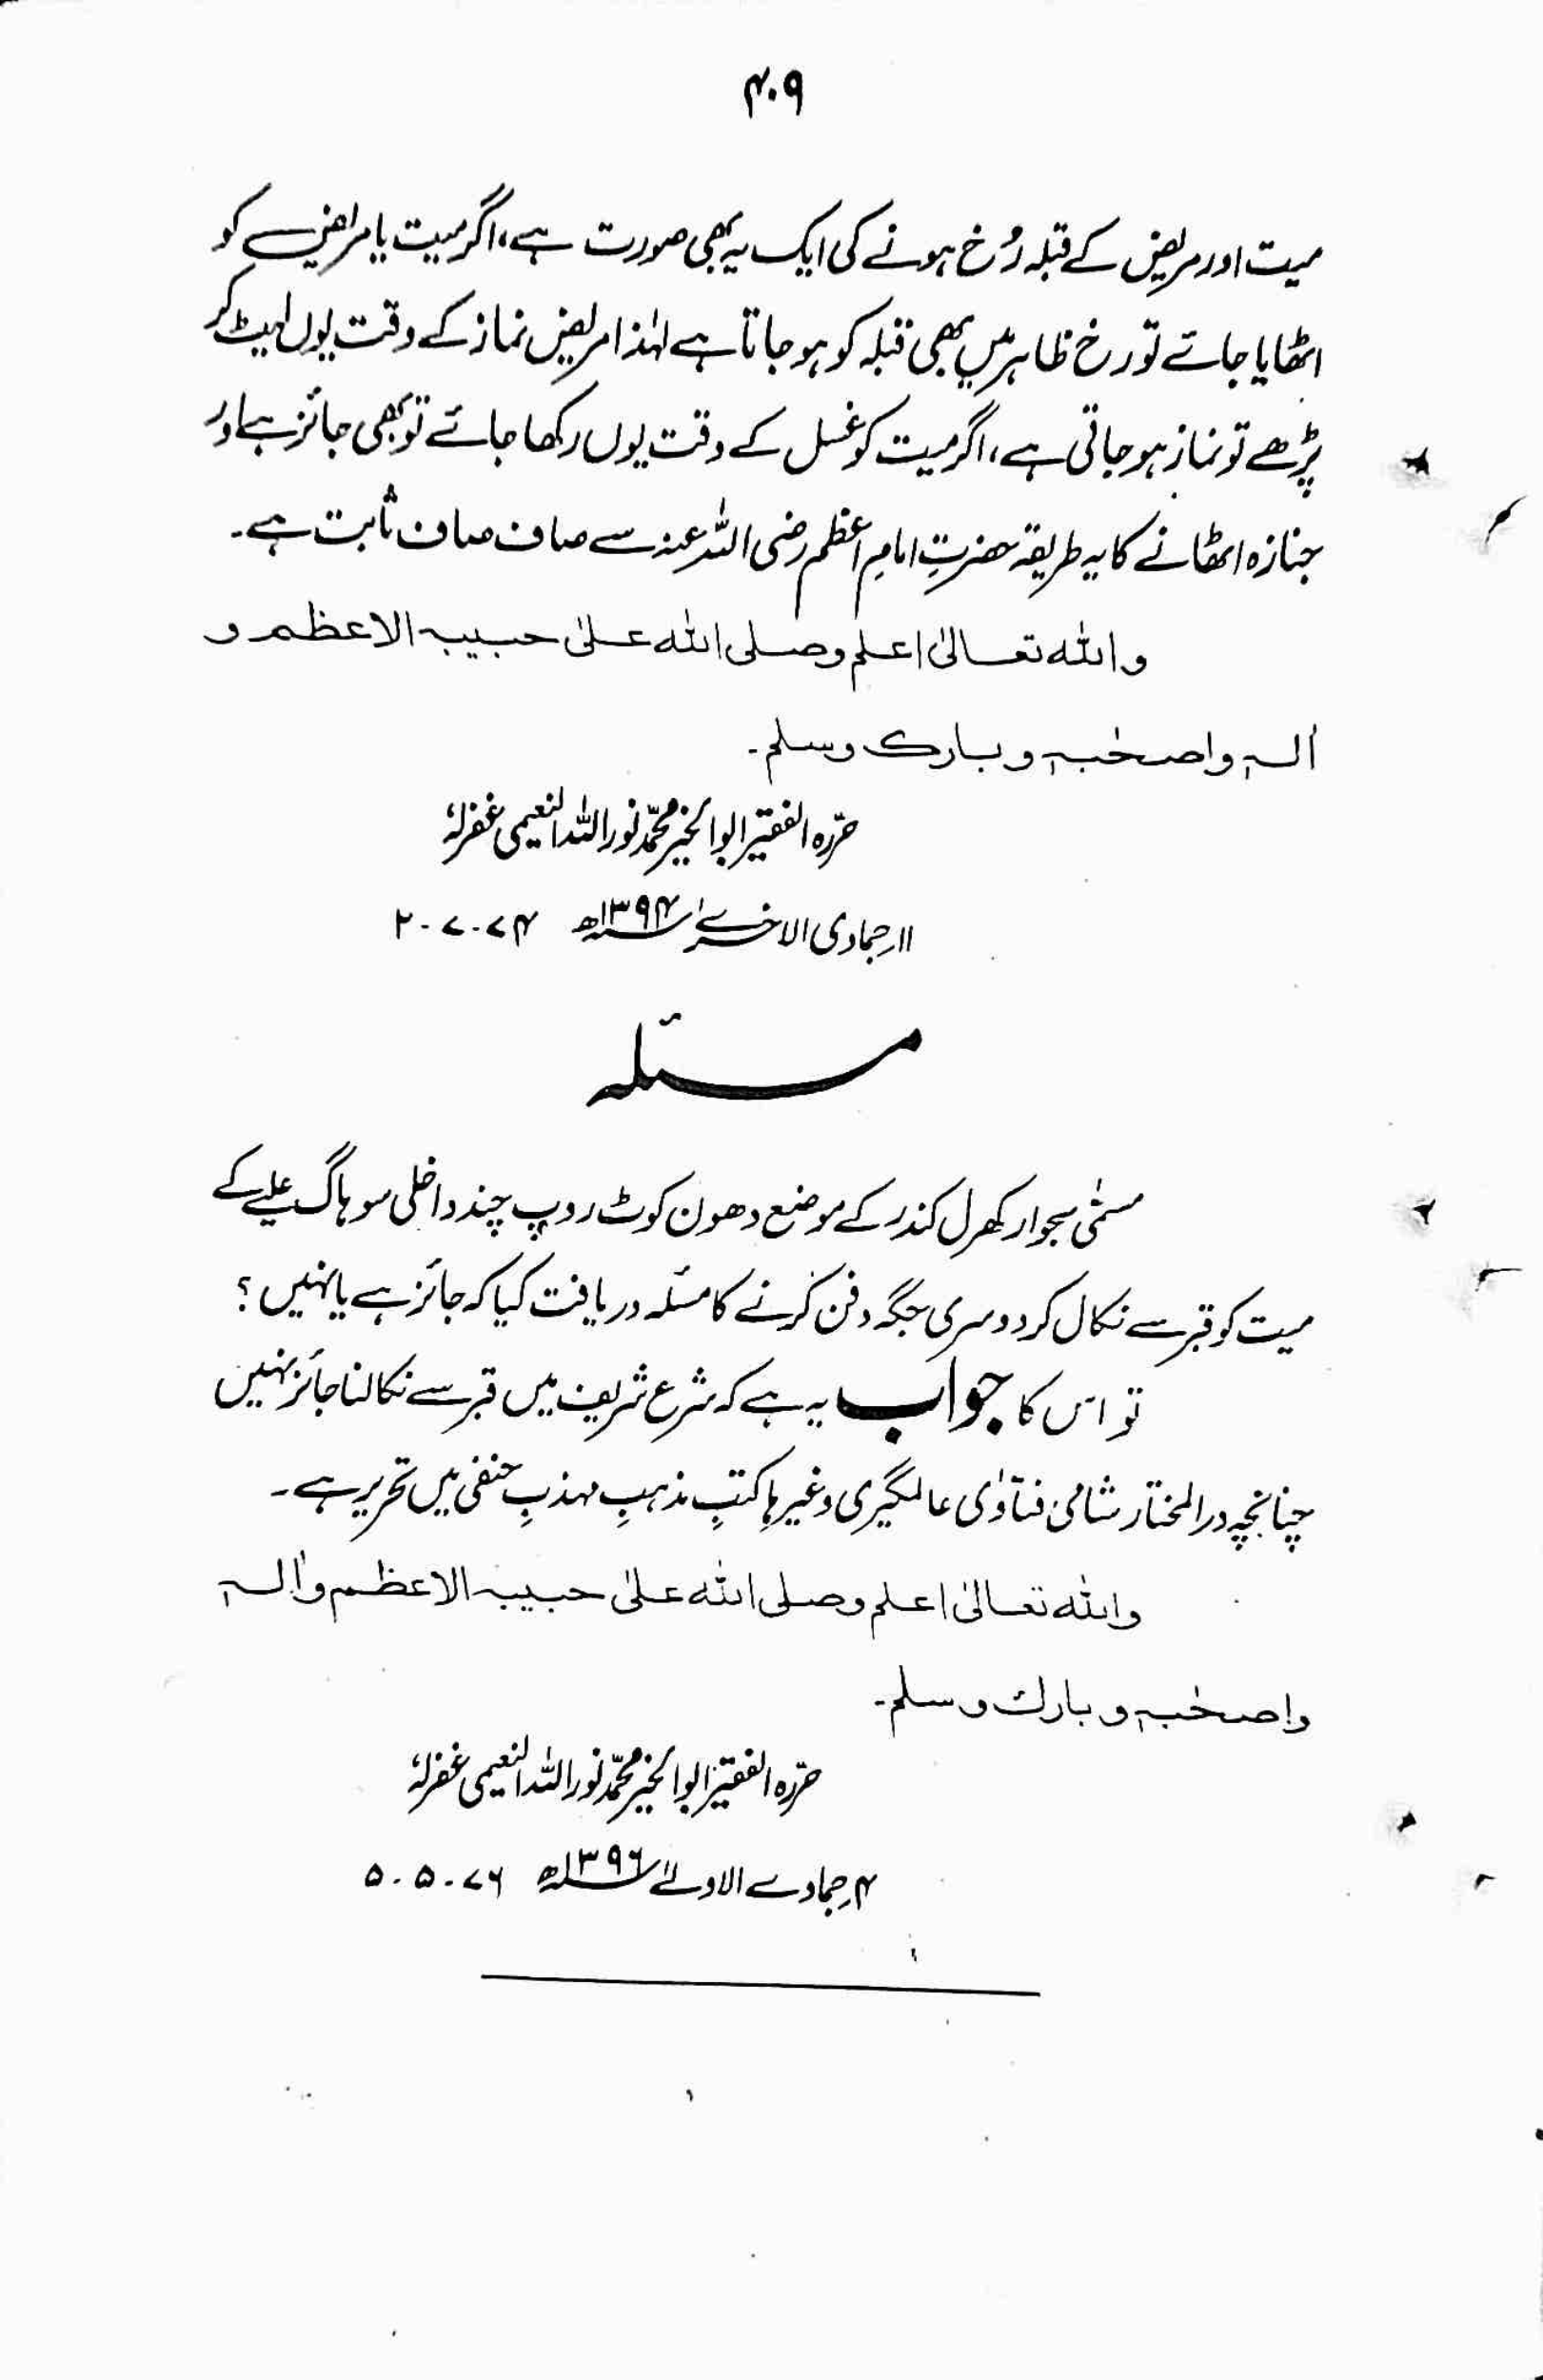 ۴۰۹
میت اور مریض کے قبلہ رُخ ہونے کی ایک یہ بھی صورت ہے، اگر میت یا مریض کو
اٹھایا جائے تو رخ ظاہر میں بھی قبلہ کو ہو جاتا ہے لہٰذا مریض نماز کے وقت یوں لیٹ کر
پڑھے تو نماز ہو جاتی ہے، اگر میت کو غسل کے وقت یوں رکھا جائے تو بھی جائز ہے اور
جنازہ اٹھانے کا یہ طریقہ حضرتِ امامِ اعظم رضی اللہ عنہ سے صاف صاف ثابت ہے۔
واللہ تعالیٰ اعلم وصلی اللہ علیٰ حبیبہ الاعظم و
اٰلہٖ واصحٰبہٖ وبارک وسلم۔
حرّرہ الفقیر ابوالخیر محمّد نور اللہ النعیمی غفرلہٗ
۱۱؍جمادی الاخریٰ ۱۳۹۴ھ ۷۴۔۷۔۲
مسئلہ
مسمّٰی سجوار کھرل کندر کے موضع دھون کوٹ روپ چند داخلی سوہاگ علیے کے
میت کو قبر سے نکال کر دوسری جگہ دفن کرنے کا مسئلہ دریافت کیا کہ جائز ہے یا نہیں؟
تو اس کا جواب یہ ہے کہ شرع شریف میں قبر سے نکالنا جائز نہیں
چنانچہ درالمختار شامی فتاوٰی عالمگیری وغیرہا کتبِ مذہبِ مہذبِ حنفی میں تحریر ہے۔
واللہ تعالیٰ اعلم وصلی اللہ علیٰ حبیبہ الاعظم واٰلہٖ
واصحٰبہٖ وبارك وسلم۔
حرّرہ الفقیر ابوالخیر محمّد نور اللہ النعیمی غفرلہٗ
۴؍جمادے الاولےٰ ۱۳۹۶ھ ۷۶۔۵۔۵